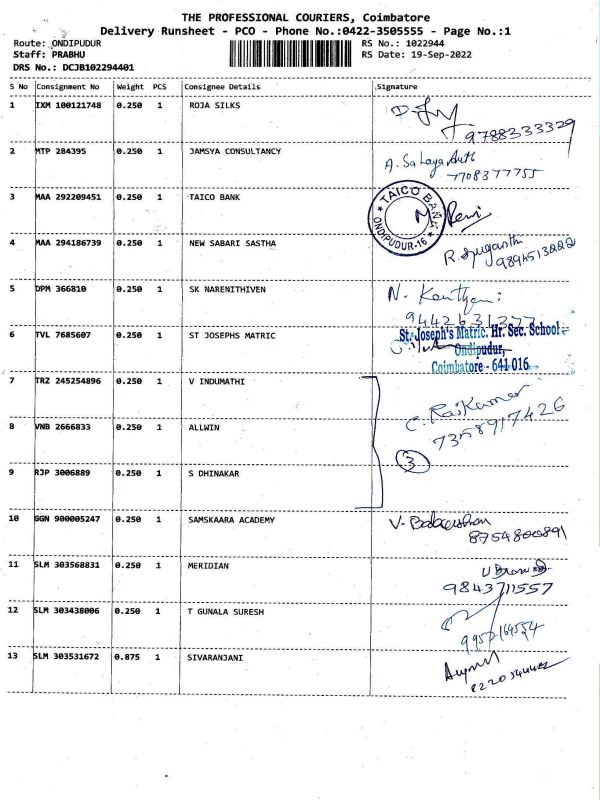 THE PROFESSIONAL COURIERS, Coimbatore
Delivery Runsheet - PCO - Phone No.:0422-3505555 - Page No.:1
Route: ONDIPUDUR RS No.: 1022944
Staff: PRABHU RS Date: 19-Sep-2022
DRS No.: DCJB102294401
S No Consignment No Weight PCS Consignee Details Signature
1 IXM 100121748 0.250 1 ROJA SILKS
9788333329
2 MTP 284395 0.250 1 JAMSYA CONSULTANCY
7708377755
3 MAA 292209451 0.250 1 TAICO BANK
* TAICO BANK * ONDIPUDUR-16
4 MAA 294186739 0.250 1 NEW SABARI SASTHA
R. Suganthi
9894513222
5 DPM 366810 0.250 1 SK NARENITHIVEN
N.
9442631377
6 TVL 7685607 0.250 1 ST JOSEPHS MATRIC
St. Joseph's Matric. Hr. Sec. School
Ondipudur,
Coimbatore - 641 016
7 TRZ 245254896 0.250 1 V INDUMATHI
C. Rajkumar
7358917426
8 VNB 2666833 0.250 1 ALLWIN
3
9 RJP 3006889 0.250 1 S DHINAKAR
10 GGN 900005247 0.250 1 SAMSKAARA ACADEMY
8754800891
11 SLM 303568831 0.250 1 MERIDIAN
9843711557
12 SLM 303438006 0.250 1 T GUNALA SURESH
13 SLM 303531672 0.875 1 SIVARANJANI